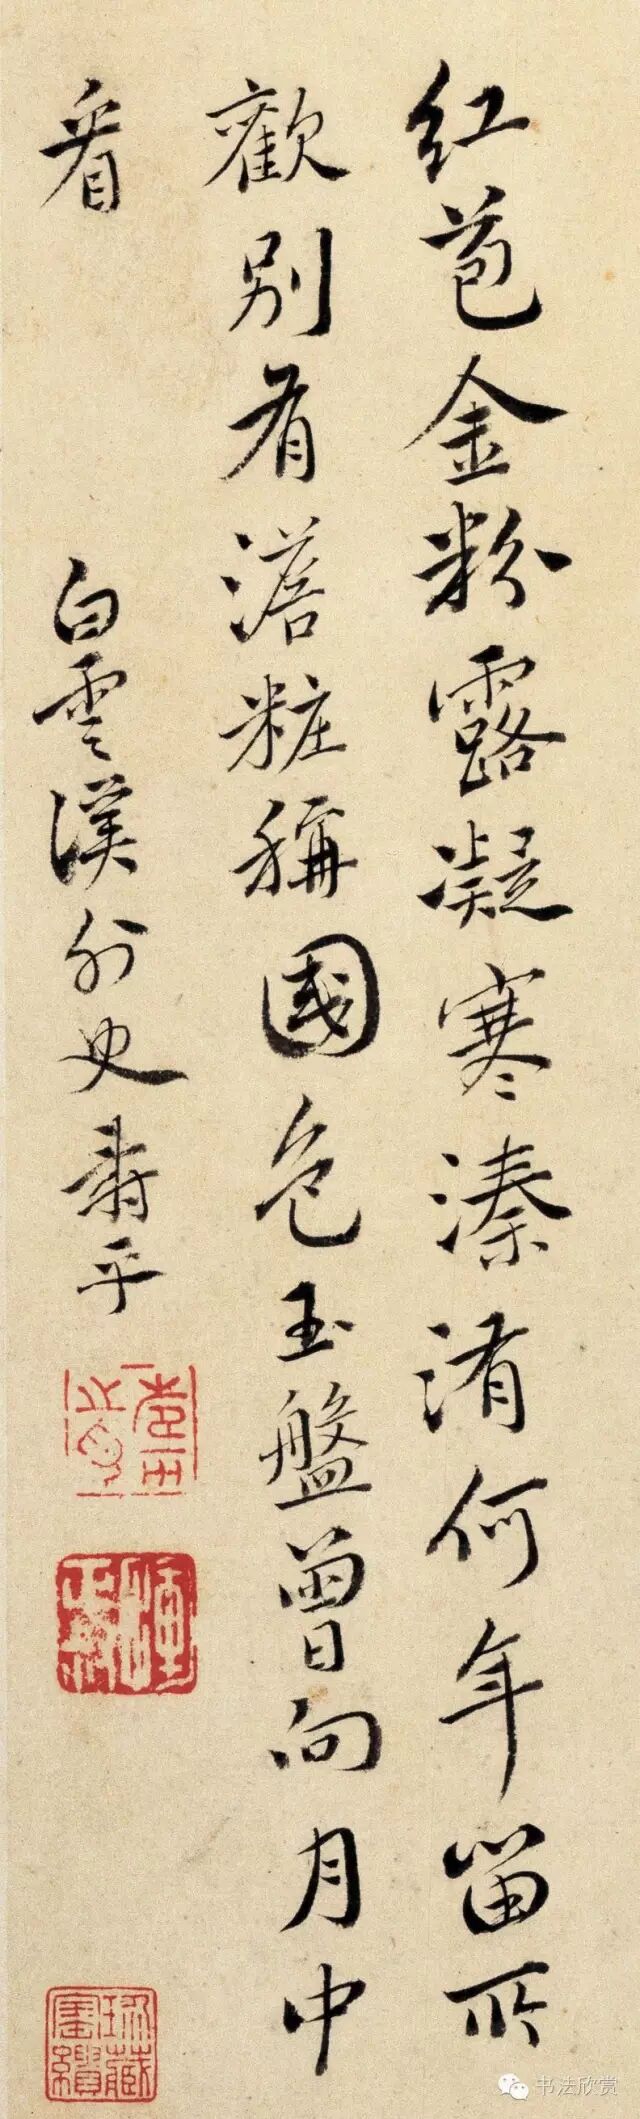 红苞金粉露凝寒溱洧何年留所
歡別有澹粧稱國色玉盤曾向月中
看
白雲溪外史壽平
书法欣赏